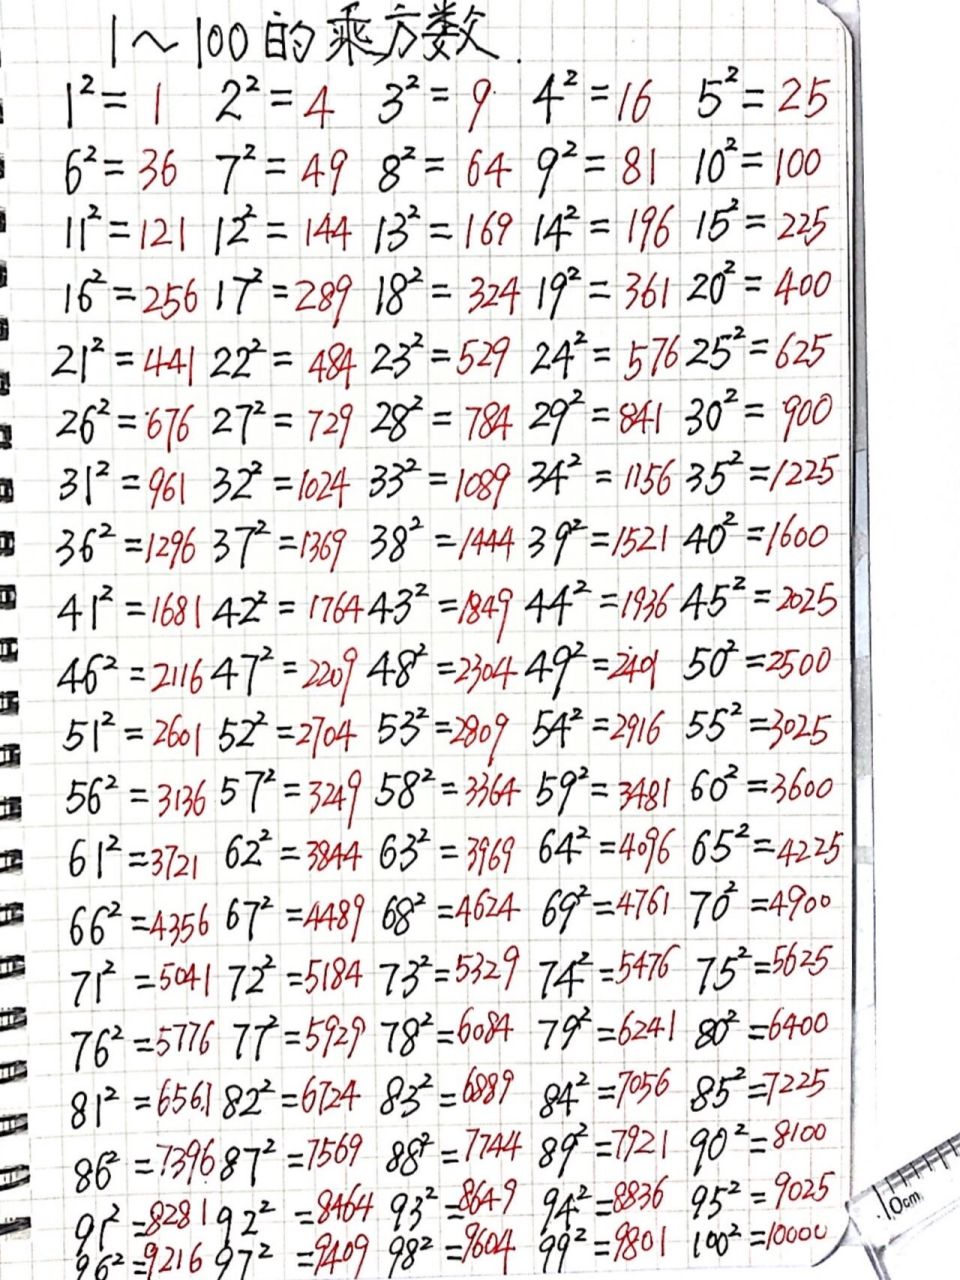 1～100的乘方数.
1² = 1 2² = 4 3² = 9 4² = 16 5² = 25
6² = 36 7² = 49 8² = 64 9² = 81 10² = 100
11² = 121 12² = 144 13² = 169 14² = 196 15² = 225
16² = 256 17² = 289 18² = 324 19² = 361 20² = 400
21² = 441 22² = 484 23² = 529 24² = 576 25² = 625
26² = 676 27² = 729 28² = 784 29² = 841 30² = 900
31² = 961 32² = 1024 33² = 1089 34² = 1156 35² = 1225
36² = 1296 37² = 1369 38² = 1444 39² = 1521 40² = 1600
41² = 1681 42² = 1764 43² = 1849 44² = 1936 45² = 2025
46² = 2116 47² = 2209 48² = 2304 49² = 2401 50² = 2500
51² = 2601 52² = 2704 53² = 2809 54² = 2916 55² = 3025
56² = 3136 57² = 3249 58² = 3364 59² = 3481 60² = 3600
61² = 3721 62² = 3844 63² = 3969 64² = 4096 65² = 4225
66² = 4356 67² = 4489 68² = 4624 69² = 4761 70² = 4900
71² = 5041 72² = 5184 73² = 5329 74² = 5476 75² = 5625
76² = 5776 77² = 5929 78² = 6084 79² = 6241 80² = 6400
81² = 6561 82² = 6724 83² = 6889 84² = 7056 85² = 7225
86² = 7396 87² = 7569 88² = 7744 89² = 7921 90² = 8100
91² = 8281 92² = 8464 93² = 8649 94² = 8836 95² = 9025
96² = 9216 97² = 9409 98² = 9604 99² = 9801 100² = 10000
0cm